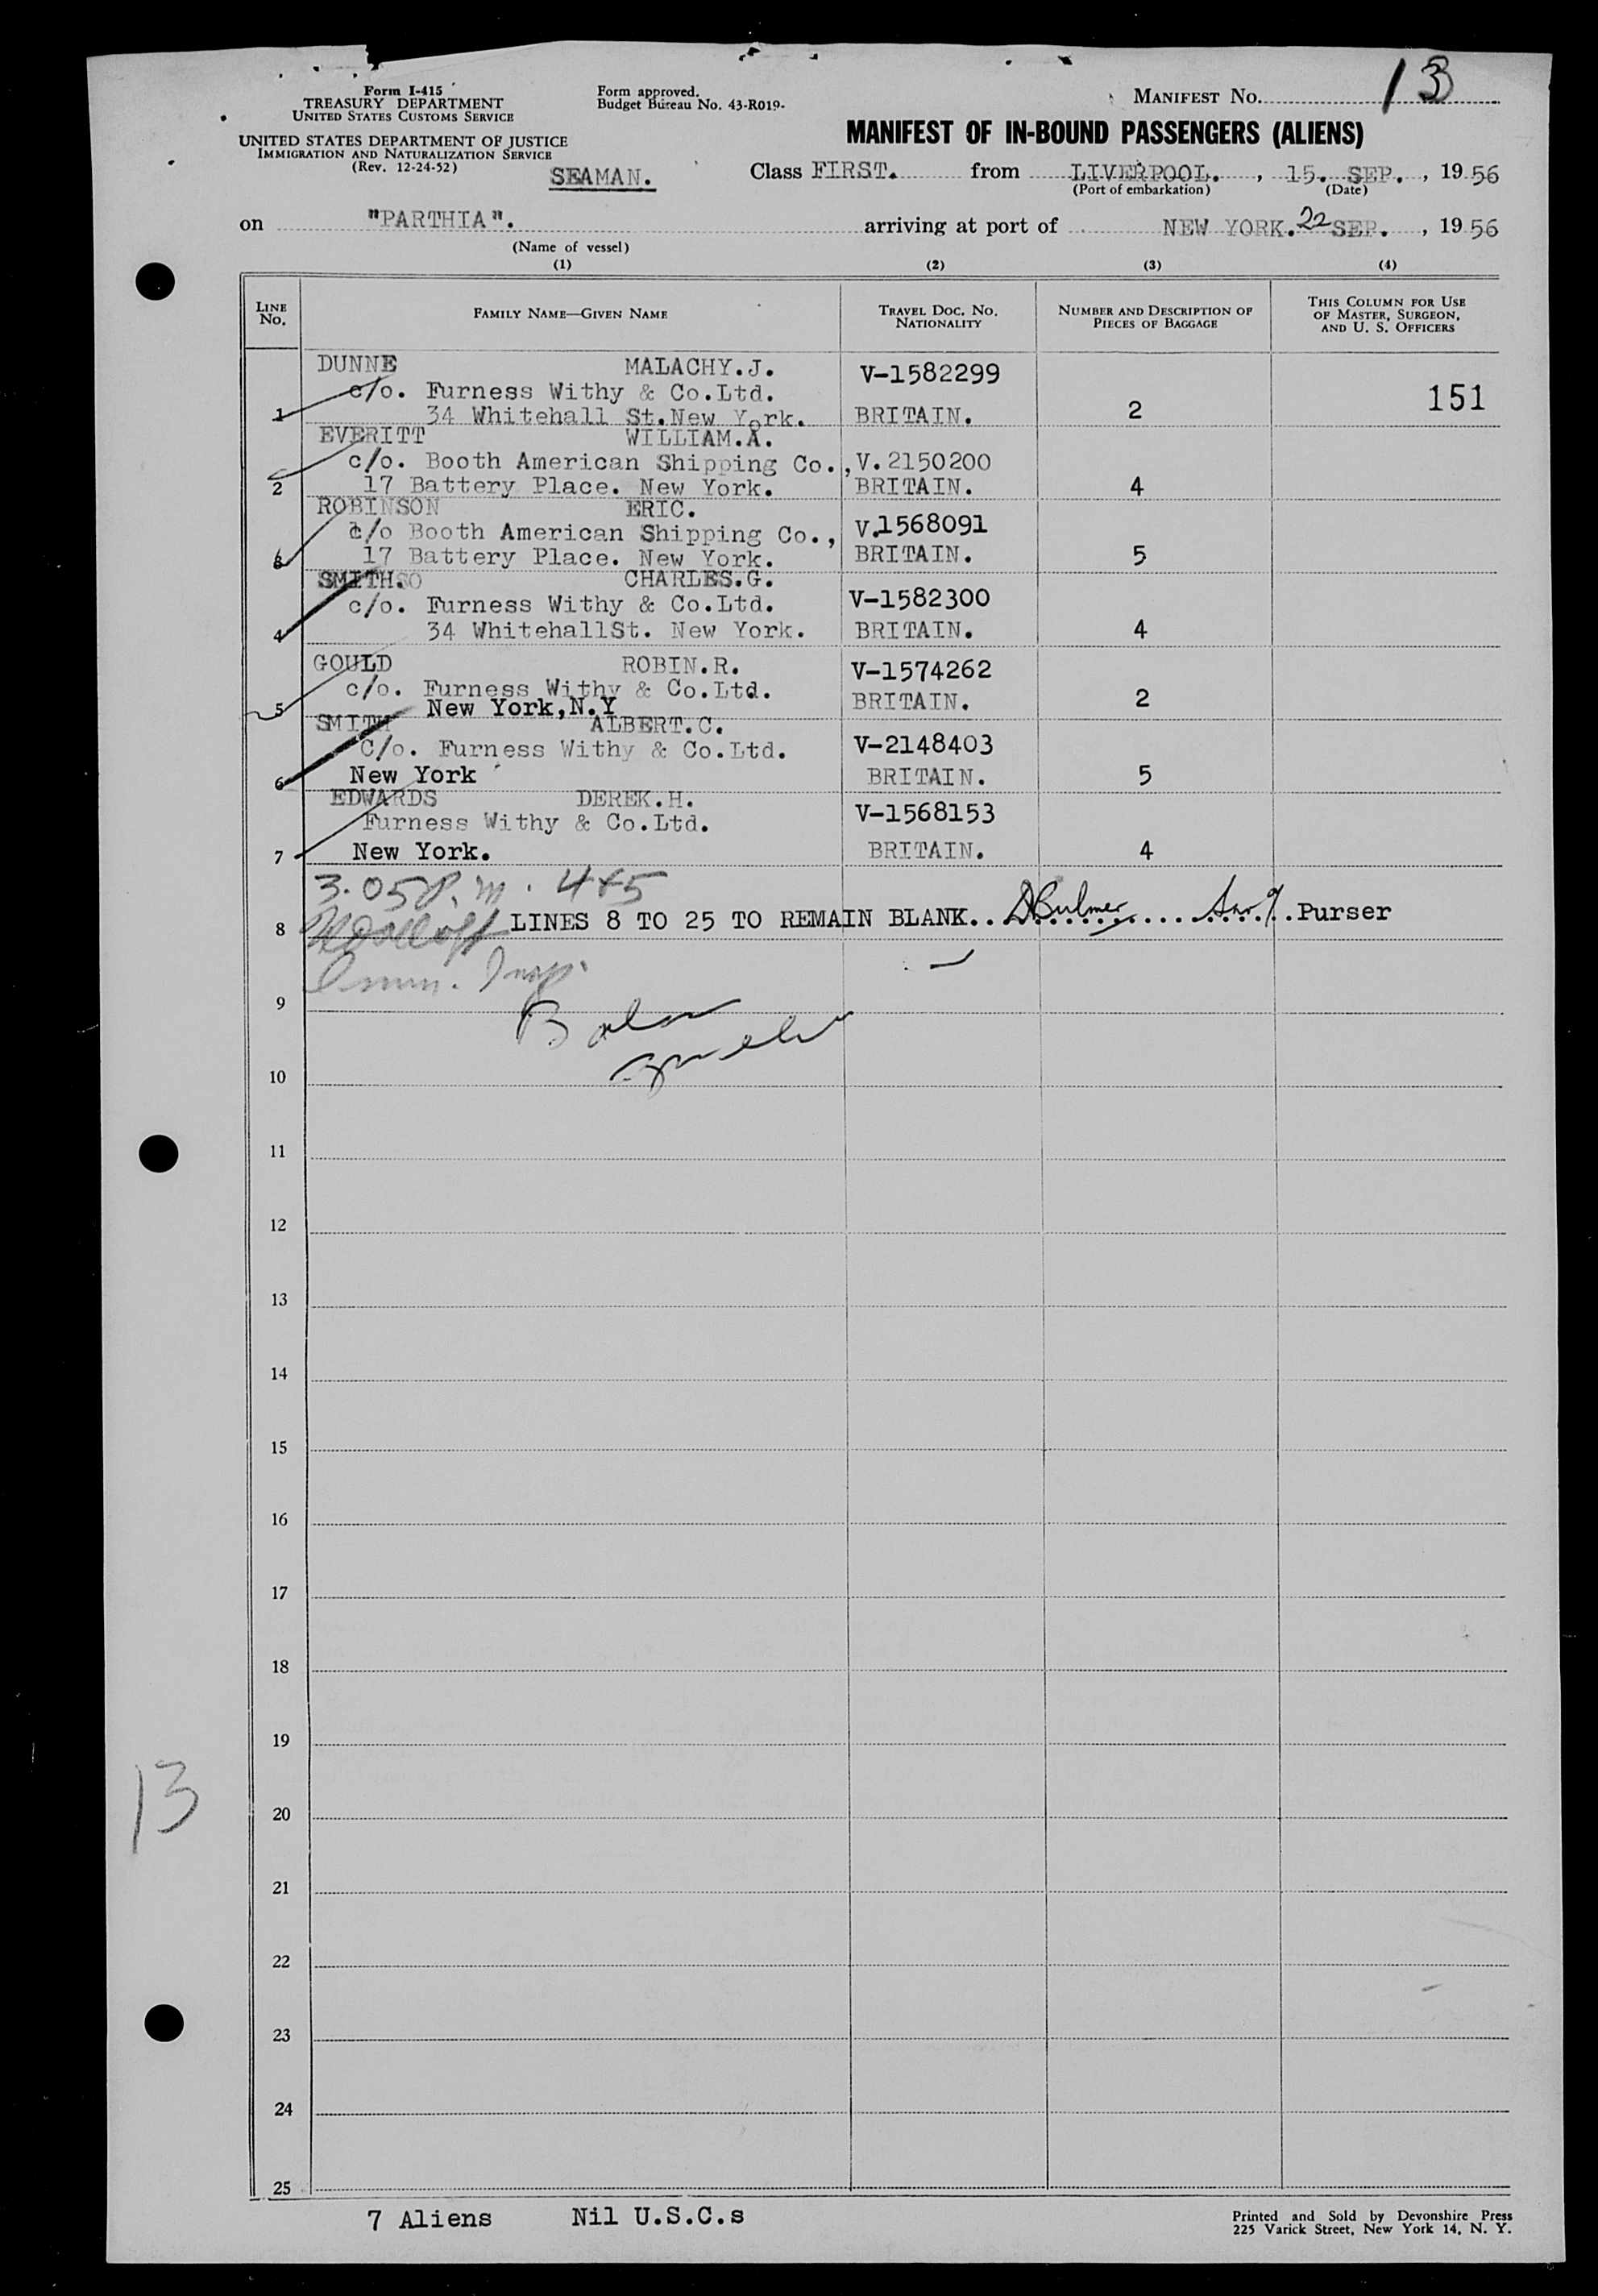 Form I-415
TREASURY DEPARTMENT
UNITED STATES CUSTOMS SERVICE
UNITED STATES DEPARTMENT OF JUSTICE
IMMIGRATION AND NATURALIZATION SERVICE
(Rev. 12-24-52)
SEAMAN.
Form approved.
Budget Bureau No. 43-R019-
MANIFEST No. 13
MANIFEST OF IN-BOUND PASSENGERS (ALIENS)
Class FIRST. from LIVERPOOL. , 15. SEP. , 19 56
(Port of embarkation) (Date)
on "PARTHIA". arriving at port of NEW YORK. 22 SEP. , 19 56
(Name of vessel)
(1) (2) (3) (4)
LINE No. FAMILY NAME—GIVEN NAME TRAVEL DOC. NO. NATIONALITY NUMBER AND DESCRIPTION OF PIECES OF BAGGAGE THIS COLUMN FOR USE OF MASTER, SURGEON, AND U. S. OFFICERS
DUNNE MALACHY.J. V-1582299
c/o. Furness Withy & Co.Ltd. 151
1 34 Whitehall St.New York. BRITAIN. 2
EVERITT WILLIAM.A.
c/o. Booth American Shipping Co., V.2150200
2 17 Battery Place. New York. BRITAIN. 4
ROBINSON ERIC.
c/o Booth American Shipping Co., V.1568091
3 17 Battery Place. New York. BRITAIN. 5
SMITH.SO CHARLES.G.
c/o. Furness Withy & Co.Ltd. V-1582300
4 34 WhitehallSt. New York. BRITAIN. 4
GOULD ROBIN.R. V-1574262
c/o. Furness Withy & Co.Ltd.
5 New York,N.Y BRITAIN. 2
SMITH ALBERT.C.
C/o. Furness Withy & Co.Ltd. V-2148403
6 New York BRITAIN. 5
EDWARDS DEREK.H.
Furness Withy & Co.Ltd. V-1568153
7 New York. BRITAIN. 4
3.05 P.m. 4+5
8 LINES 8 TO 25 TO REMAIN BLANK.. DBulmer Purser
Imm. Insp.
9
10
11
12
13
14
15
16
17
18
19
13
20
21
22
23
24
25
7 Aliens Nil U.S.C.s
Printed and Sold by Devonshire Press
225 Varick Street, New York 14, N. Y.